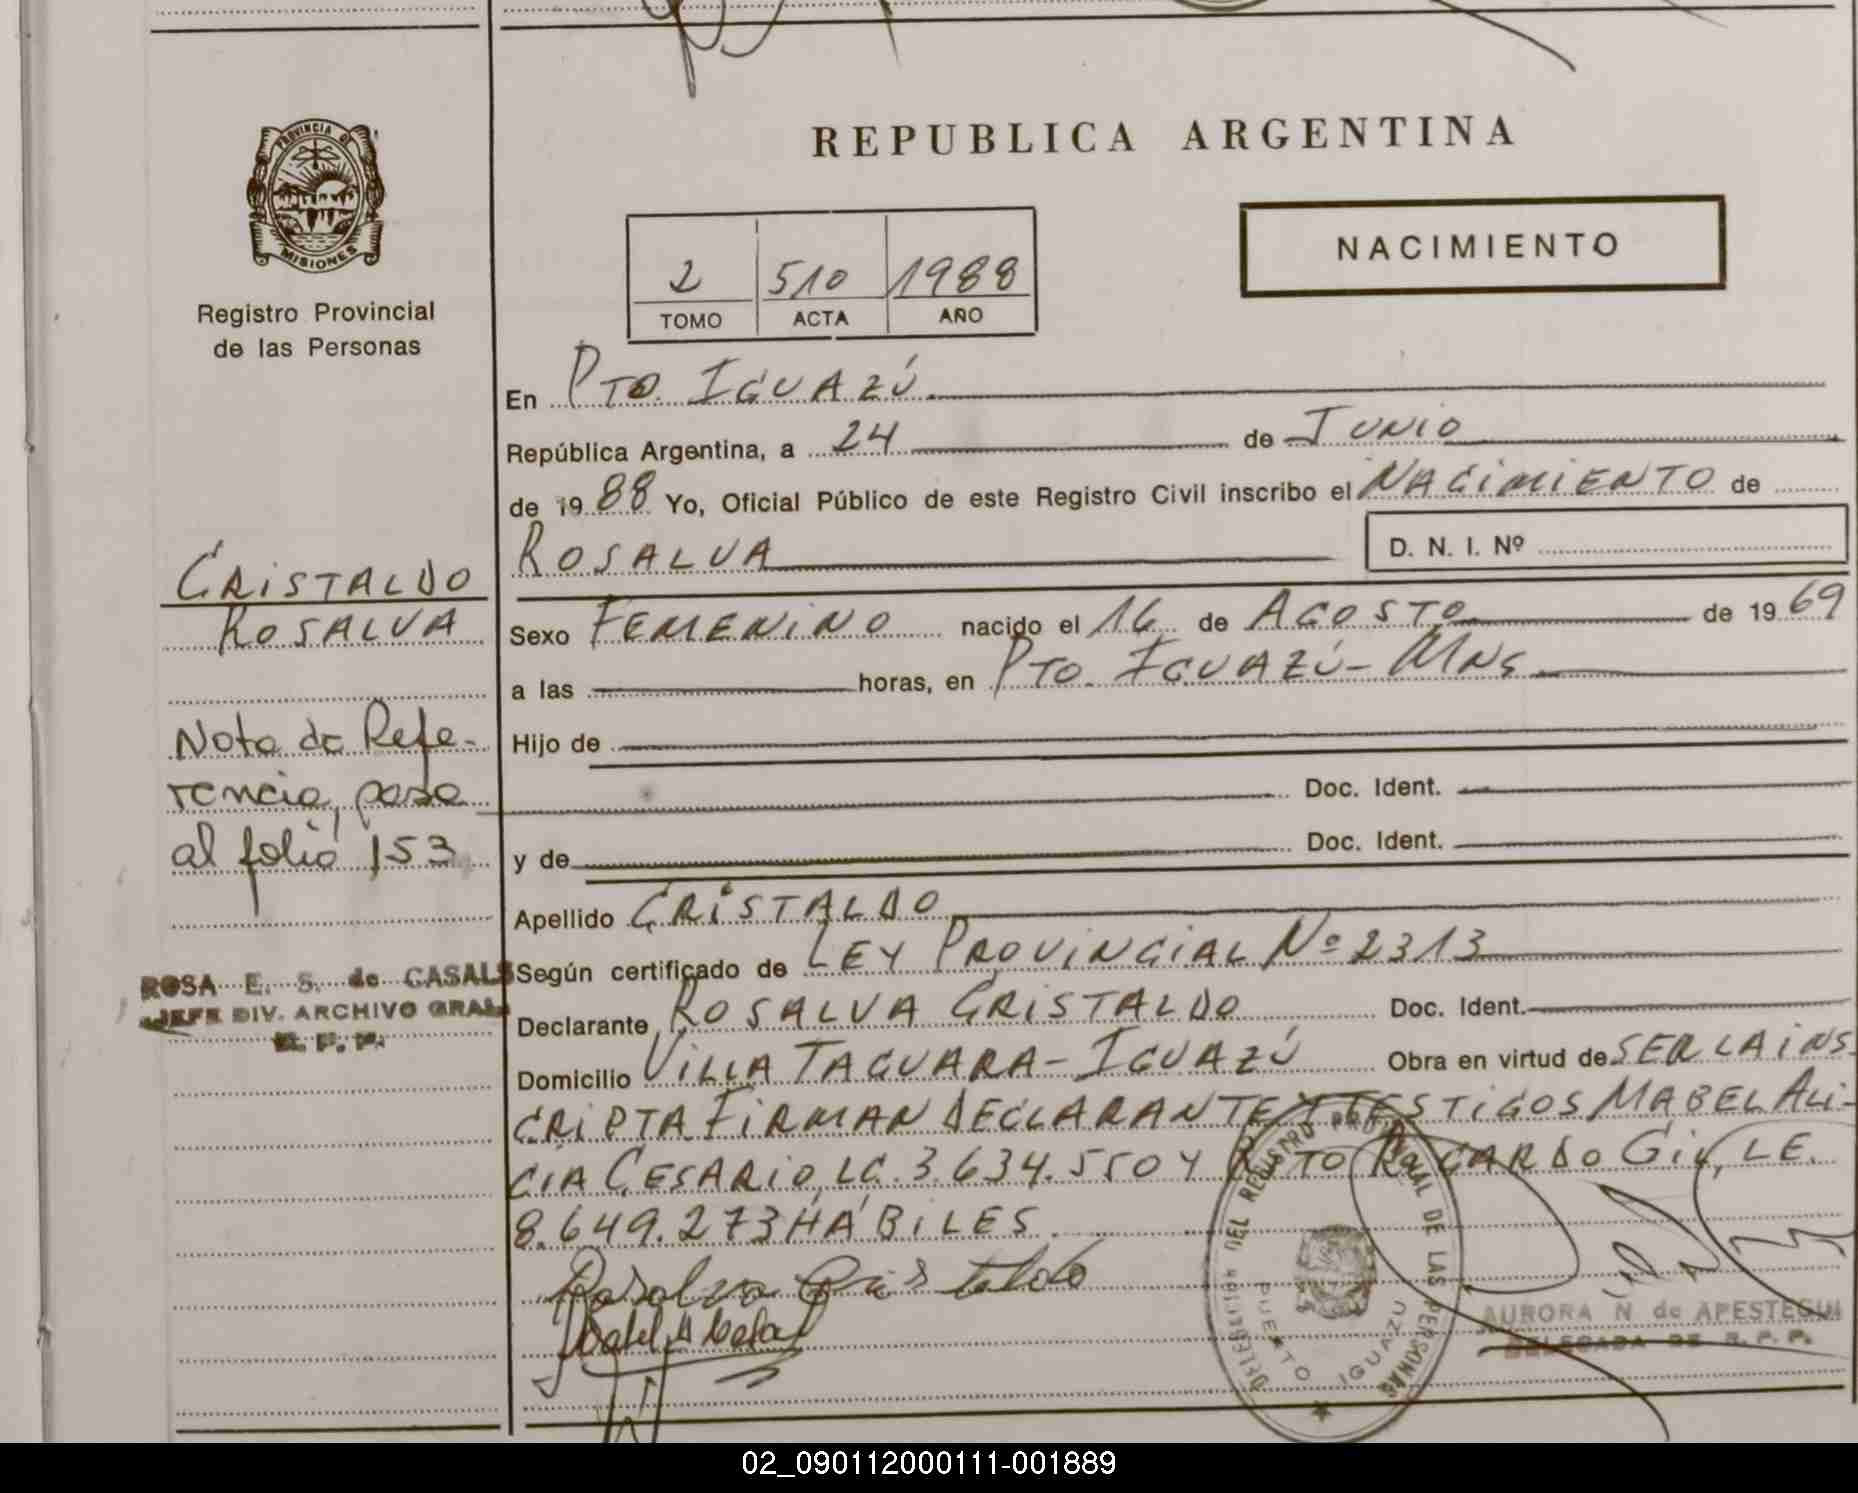 REPUBLICA ARGENTINA
PROVINCIA DE
MISIONES
Registro Provincial
de las Personas
NACIMIENTO
2 510 1988
TOMO ACTA AÑO
En PTO. IGUAZÚ
República Argentina, a 24 de JUNIO
de 1988 Yo, Oficial Público de este Registro Civil inscribo el NACIMIENTO de
ROSALVA
D. N. I. Nº
CRISTALDO
ROSALVA
Sexo FEMENINO nacido el 16 de AGOSTO de 1969
a las horas, en PTO. IGUAZÚ - MNS
Nota de Refe-
rencia, pasa
al folio 153
Hijo de
Doc. Ident.
y de Doc. Ident.
Apellido CRISTALDO
Según certificado de LEY PROVINCIAL Nº 2313
ROSA E. S. de CASALS
JEFE DIV. ARCHIVO GRAL
R. P. P.
Declarante ROSALVA CRISTALDO Doc. Ident.
Domicilio VILLA TACUARA - IGUAZÚ Obra en virtud de SER LA INS-
CRIPTA. FIRMAN DECLARANTE Y TESTIGOS MABEL ALI-
CIA CESARIO, LC. 3.634.550 Y RICARDO GIL, LE.
8.649.273 HÁBILES
Rosalva Cristaldo
DELEGACION DEL REGISTRO PROVINCIAL DE LAS PERSONAS
PUERTO IGUAZU
AURORA N. de APESTEGUI
DELEGADA DE R. P. P.
02_090112000111-001889